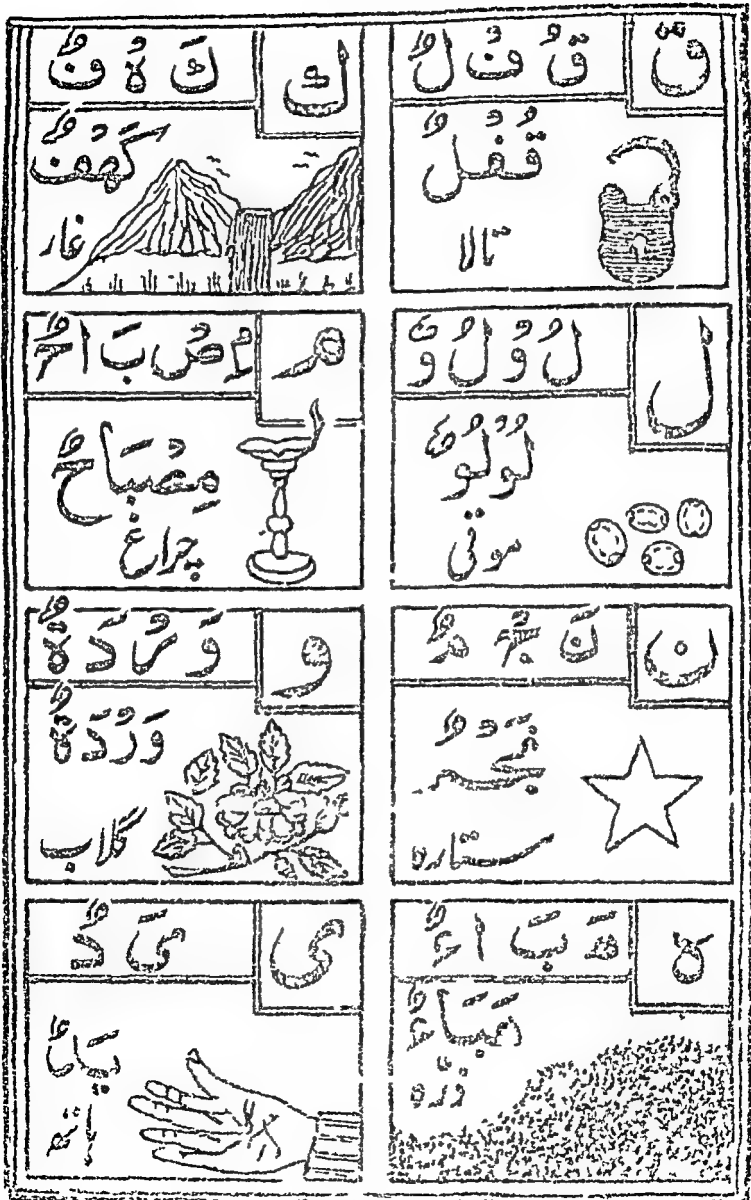 ق
قُ فْ لٌ
قُفْلٌ
تالا
ك
كَ هْ فٌ
كَهْفٌ
غار
ل
لُ وْ لُ وٌ
لُوْلُوٌ
موتی
م
مِ صْ بَ ا حٌ
مِصْبَاحٌ
چراغ
ن
نَ جْ مٌ
نَجْمٌ
ستارہ
و
وَ رْ دَ ةٌ
وَرْدَةٌ
گلاب
ه
هَ بَ ا ءٌ
هَبَاءٌ
ذرہ
ى
يَ دٌ
يَدٌ
ہاتھ